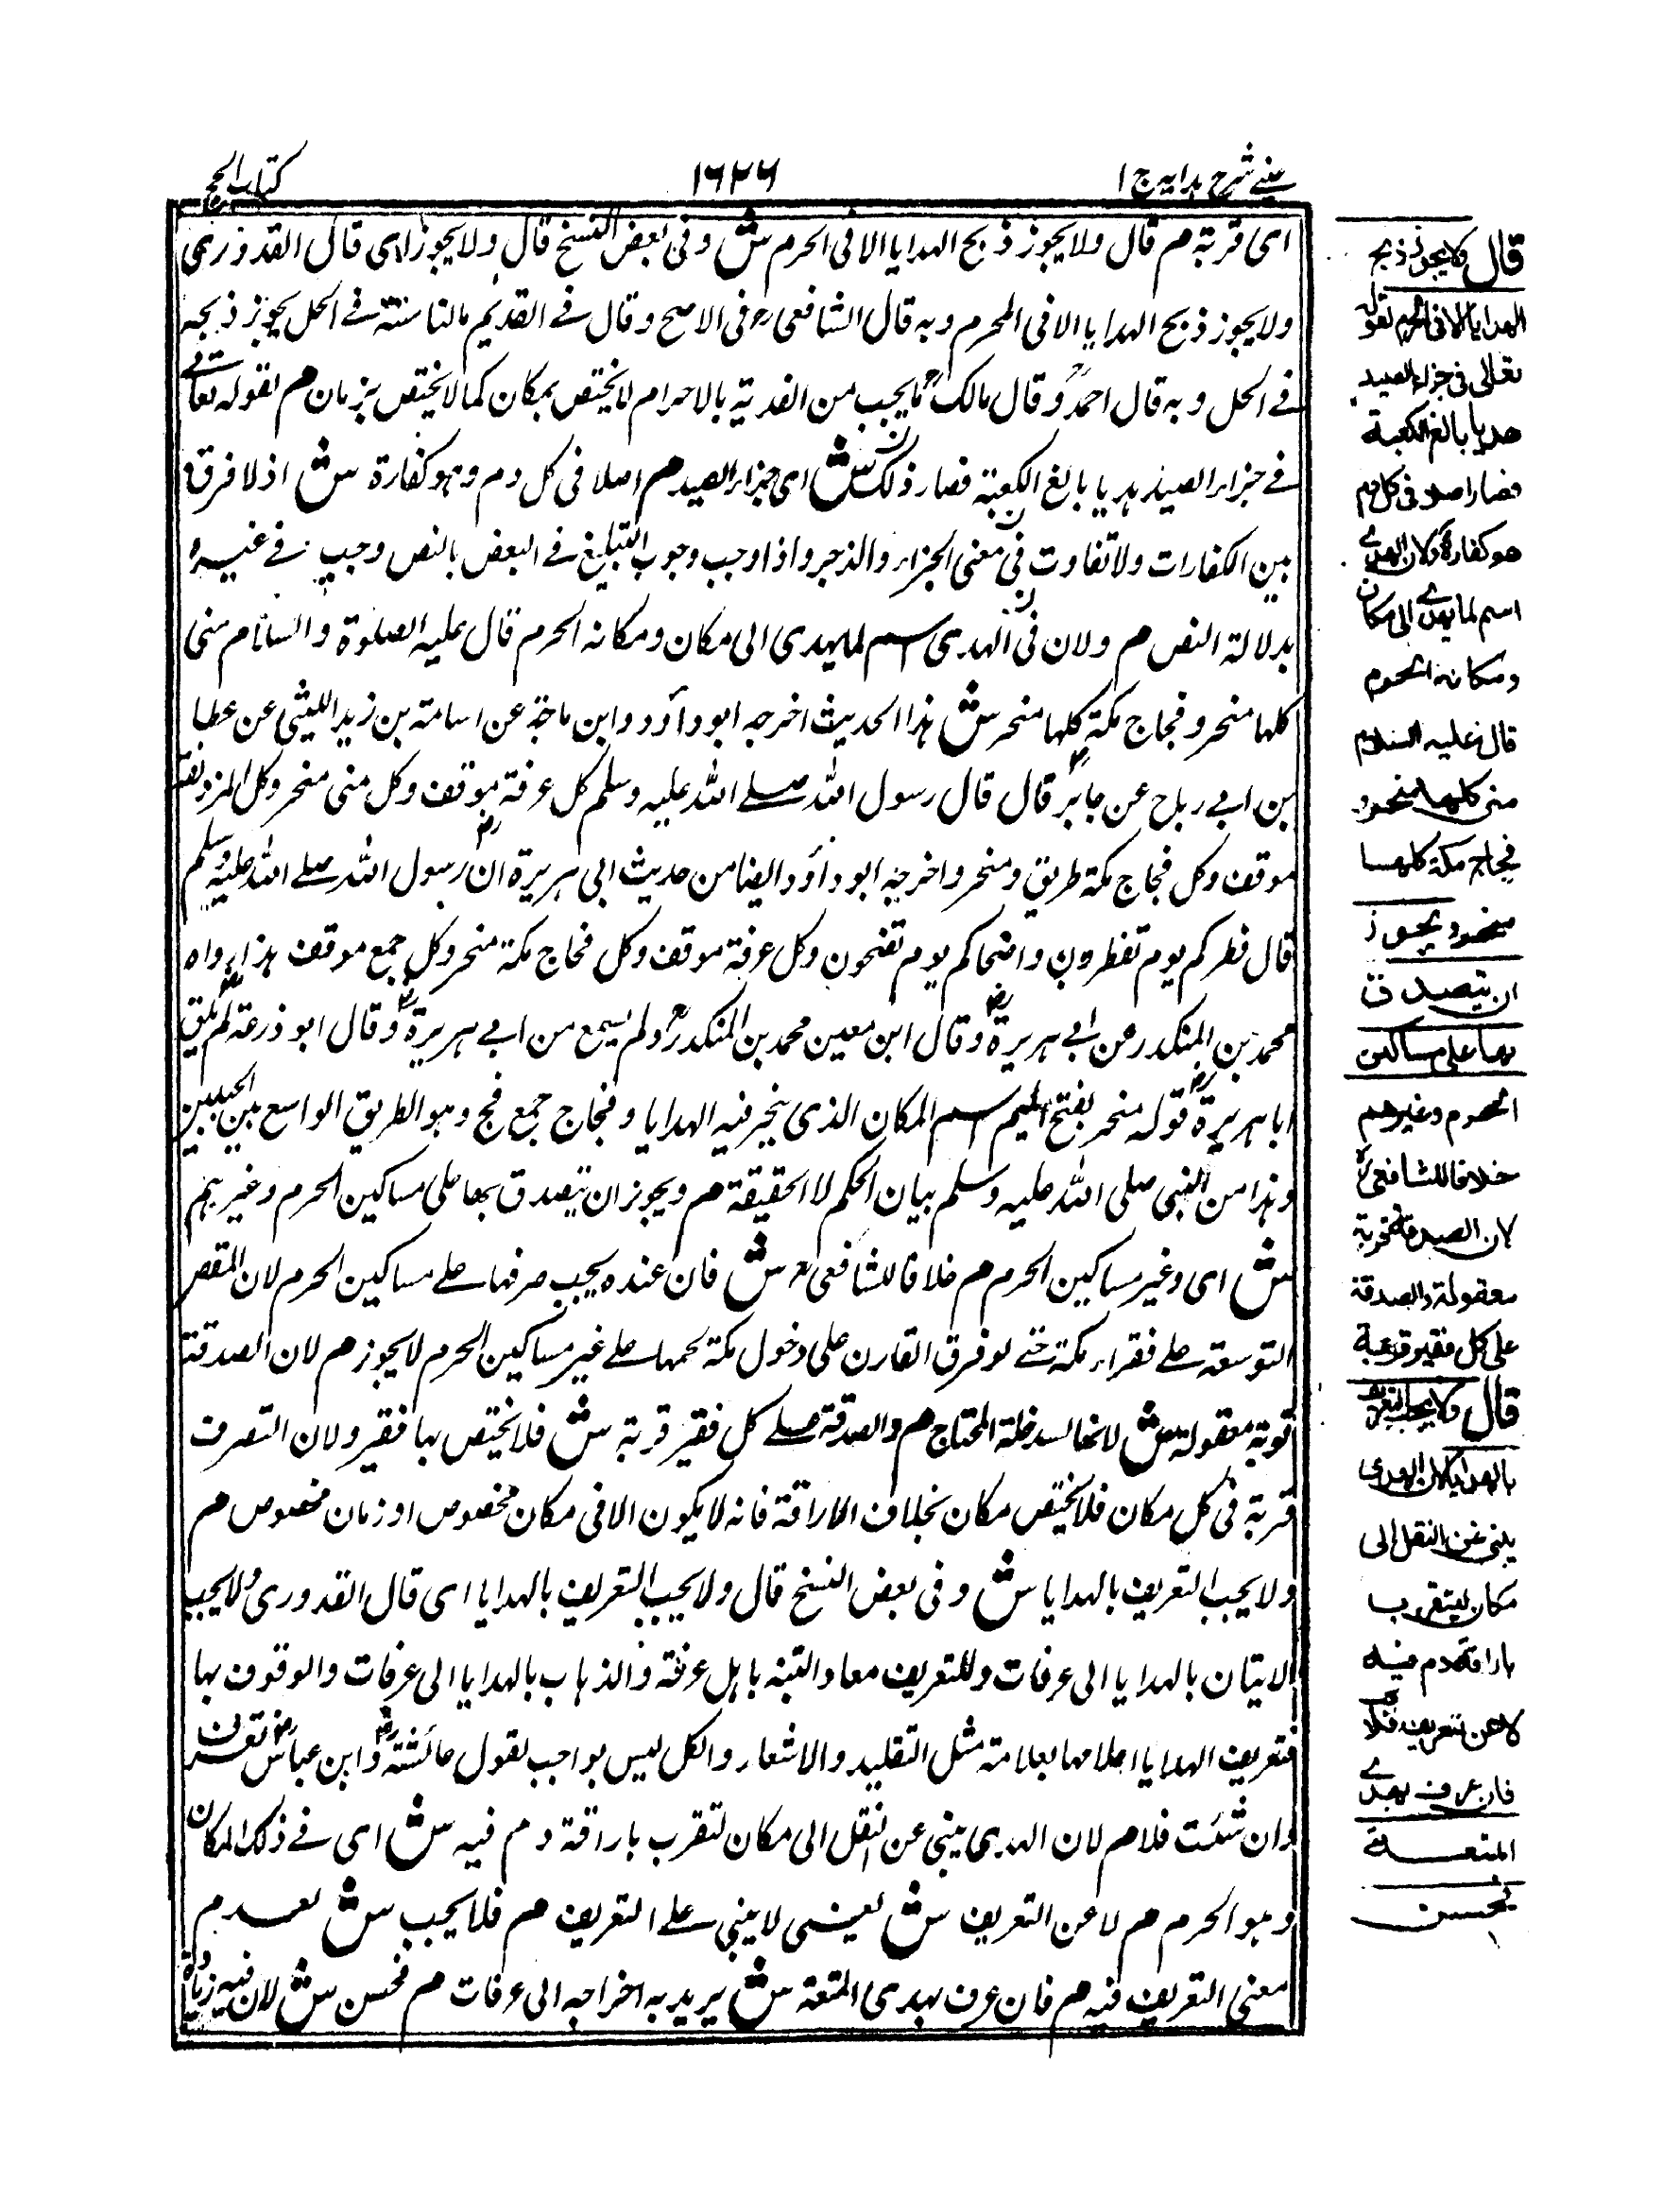 عيني شرح هدايه ج ١
١٦٢٦
كتاب الحج
اى قربة م قال ولا يجوز ذبح الهدايا الا فى الحرم ش وفى بعض النسخ قال ولا يجوز لاى قال القدورى
ولا يجوز ذبح الهدايا الا فى المحرم وبه قال الشافعى رح فى الاصح وقال فے القديم فے الحل يجوز ذبحه
فے الحل وبه قال احمدؒ وقال مالكؒ ما يجب من الفدية بالاحرام لا يختص بمكان كما لا يختص بزمان م لقوله تعالے
فے جزاء الصيد هديا بالغ الكعبة فصار ذلك ش اى جزاء الصيد م اصلا فى كل دم وهو كفارة ش اذ لا فرق
بين الكفارات ولا تفاوت فى معنى الجزاء والزجر واذا وجب وجوب التبليغ فے البعض بالنص وجب فے غيره
بدلالة النص م ولان فى الهدى اسم لما يهدى الى مكان ومكانه الحرم قال عليه الصلوة والسلام منى
كلها منحر وفجاج مكة كلها منحر ش هذا الحديث اخرجه ابو داؤد وابن ماجة عن اسامة بن زيد الليثى عن عطا
بن ابے رباح عن جابرؓ قال قال رسول الله صلے الله عليه وسلم كل عرفة موقف وكل منى منحر وكل المزدلفة
موقف وكل فجاج مكة طريق ومنحر واخرجه ابو داؤد ايضا من حديث ابى هريرةؓ ان رسول الله صلے الله عليه وسلم
قال فطركم يوم تفطرون واضحاكم يوم تضحون وكل عرفة موقف وكل فجاج مكة منحر وكل جمع موقف هذا رواه
محمد بن المنكدر عن ابے هريرةؓ وقال ابن معين محمد بن المنكدرؒ ولم يسمع من ابے هريرةؓ وقال ابو زرعة لم يلق
ابا هريرةؓ قوله منحر بفتح الميم اسم المكان الذى ينحر فيه الهدايا وفجاج جمع فج وهو الطريق الواسع بين الجبلين
وهذا من النبى صلى الله عليه وسلم بيان الحكم لا الحقيقة م ويجوز ان يتصدق بها على مساكين الحرم وغيرهم
ش اى وغير مساكين الحرم م خلافا للشافعى رح ش فان عنده يجب صرفها صلے مساكين الحرم لان المقصر
التوسعة علے فقراء مكة حتے لو فرق القارن على دخول مكة لحمها علے غير مساكين الحرم لا يجوز م لان الصدقة
قوبة معقولة ش لانها لسد خلة المحتاج م والصدقة علے كل فقير قربة ش فلا يختص بها فقير ولان التصرف
قربة فى كل مكان فلا يختص مكان بخلاف الاراقة فانه لا يكون الا فى مكان مخصوص او زمان مخصوص م
ولا يجب التعريف بالهدايا ش وفى بعض النسخ قال ولا يجب التعريف بالهدايا اى قال القدورى ولا يجب
الاتيان بالهدايا الى عرفات وللتعريف معا والتشبه باهل عرفة والذهاب بالهدايا الى عرفات والوقوف بها
فتعريف الهدايا اعلامها بعلامة مثل التقليد والاشعار والكل ليس بواجب لقول عائشةؓ وابن عباسؓ
وان شئت فلا م لان الهدى ينبئ عن النقل الى مكان لتقرب باراقة دم فيه ش اى فے ذلك المكان
وهو الحرم م لا عن التعريف ش يعنى لا ينبئ علے التعريف م فلا يجب ش لعدم
معنى التعريف فيه م فان عرف بهدى المتعة ش يريد به اخراجه الى عرفات م فحسن ش لان فيه زيادة
قال ولا يجوز ذبح
الهدايا الا فى الحرم لقوله
تعالى فى جزاء الصيد
هديا بالغ الكعبة
فصار اصلا فى كل دم
هو كفارة ولان الهدے
اسم لما يهدے الى مكان
ومكانه الحرم
قال عليه السلام
منى كلها منحر و
فجاج مكة كلها
منحر ويجوز
ان يتصدق
بها على مساكين
الحرم وغيرهم
خلافا للشافعىؒ
لان الصدقة قربة
معقولة والصدقة
على كل فقير قربة
قال ولا يجب التعريف
بالهدايا لان الهدى
ينبئ عن النقل الى
مكان ليتقرب
باراقة دم فيه
لا عن تعريف فلا
فان عرف بهدے
المتعة
فحسن